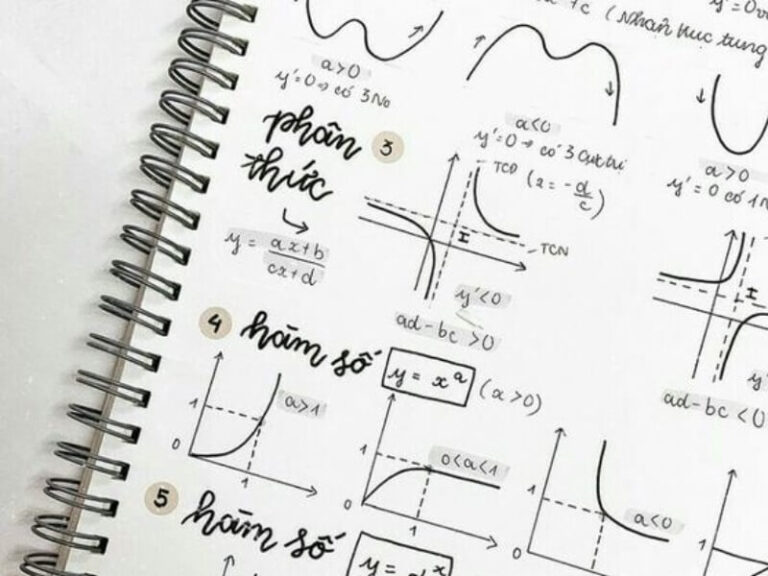 +c (Nhận trục tung
a>0
y'=0 → có 3 No
a<0
y'=0 → có 3 cực trị
a>0
y'=0 có 1 N
phân
thức
3
y = ax+b / cx+d
TCĐ (x = -d/c)
I
TCN
y'<0
ad-bc >0
I
y'
ad-bc <0
4 hàm số y = x^a (x>0)
1
0
1
a>1
1
0
1
0<a<1
1
0
a<0
1
5 hàm số